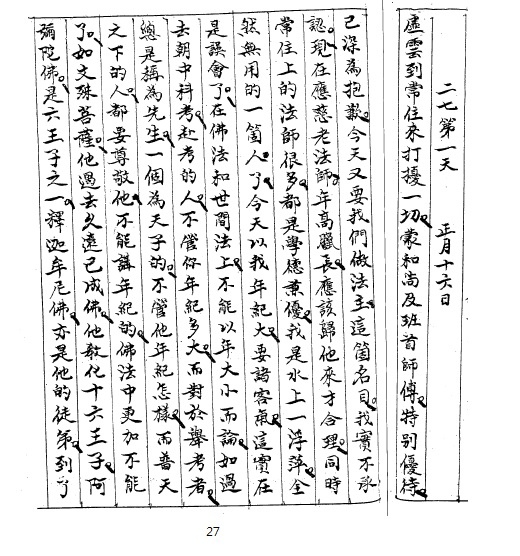 二七第一天　正月十六日
虛雲到常住來打擾一切。蒙和尚及班首師傅。特別優待。
已深為抱歉。今天又要我們做法主。這箇名目。我實不承
認。現在應慈老法師。年高臘長。應該歸他來才合理。同時
常住上的法師很多。都是學德兼優。我是水上一浮萍。全
然無用的一箇人。了今天以我年紀大。要諸客氣。這實在
是誤會了。在佛法和世間法上。不能以年大小而論。如過
去朝中科考。赴考的人。不管你年紀多大。而對於舉考者。
總是稱為先生。一個為天子的。不管他年紀怎樣。而普天
之下的人。都要尊敬他。不能講年紀的。佛法中更加不能
了。如文殊菩薩。他過去久遠已成佛。他教化十六王子。阿
彌陀佛。是六王子之一。釋迦牟尼佛。亦是他的徒弟。到了
27